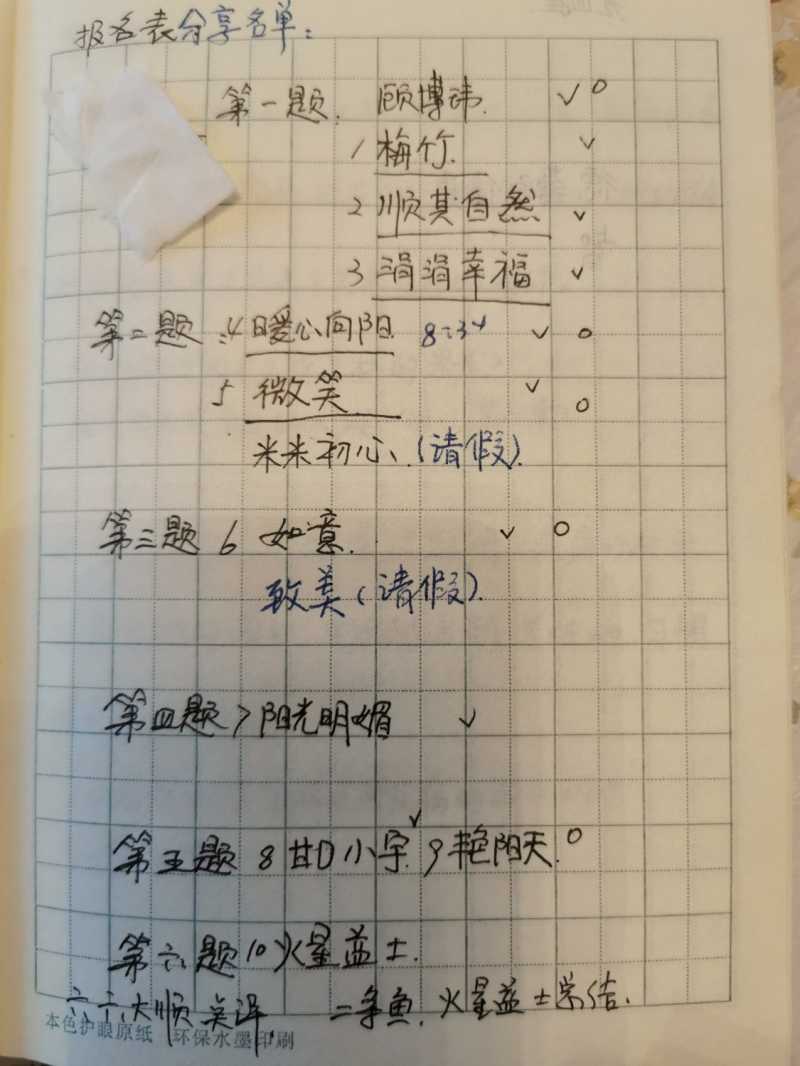 报名表分享名单:
第一题. 顾博玮. ✓ o
1 梅竹. ✓
2 顺其自然 ✓
3 涓涓幸福 ✓
第二题 :4 暖心向阳 8:34 ✓ o
5 微笑 ✓ o
米米初心、(请假).
第三题 6 如意. ✓ o
致美(请假).
第四题 7 阳光明媚 ✓
第五题 8 甘D小宇. ✓ 9 艳阳天. o
第六题 10 火星益士.
六六大顺 二条鱼. 火星益士总结.
本色护眼原纸 环保水墨印刷